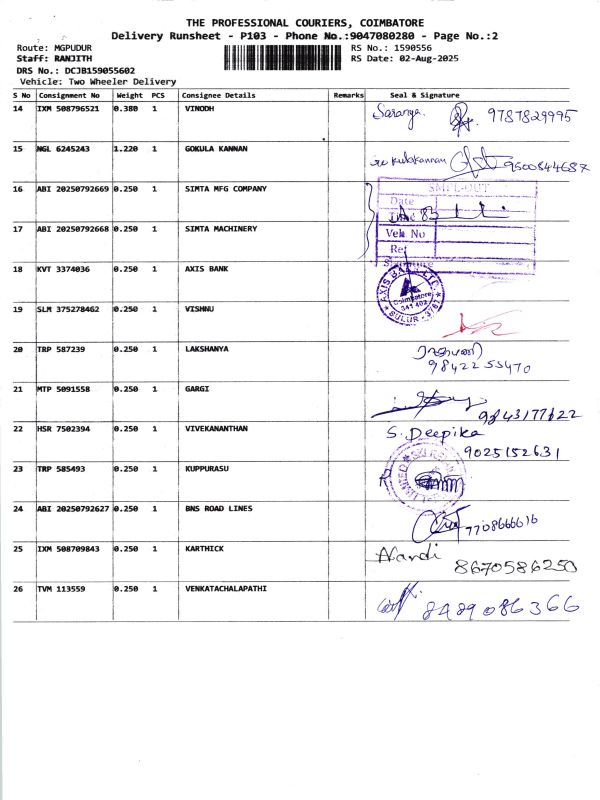 THE PROFESSIONAL COURIERS, COIMBATORE
Delivery Runsheet - P103 - Phone No.:9047080280 - Page No.:2
Route: MGPUDUR
RS No.: 1590556
Staff: RANJITH
RS Date: 02-Aug-2025
DRS No.: DCJB159055602
Vehicle: Two Wheeler Delivery
S No Consignment No Weight PCS Consignee Details Remarks Seal & Signature
14 IXM 508796521 0.380 1 VINODH Saranya. 9787829995
15 NGL 6245243 1.220 1 GOKULA KANNAN 9500844687
16 ABI 20250792669 0.250 1 SIMTA MFG COMPANY
SMPL-OUT
Date
17 ABI 20250792668 0.250 1 SIMTA MACHINERY
Veh. No
Ref
Signature
18 KVT 3374036 0.250 1 AXIS BANK
AXIS BANK LTD.
Coimbatore
641 402
SULUR - 3767
19 SLM 375278462 0.250 1 VISHNU
20 TRP 587239 0.250 1 LAKSHANYA
9842255470
21 MTP 5091558 0.250 1 GARGI
9843177622
22 HSR 7502394 0.250 1 VIVEKANANTHAN S. Deepika
9025152631
23 TRP 585493 0.250 1 KUPPURASU
24 ABI 20250792627 0.250 1 BNS ROAD LINES
7708666616
25 IXM 508709843 0.250 1 KARTHICK Nandi
8670586250
26 TVM 113559 0.250 1 VENKATACHALAPATHI
8489086366